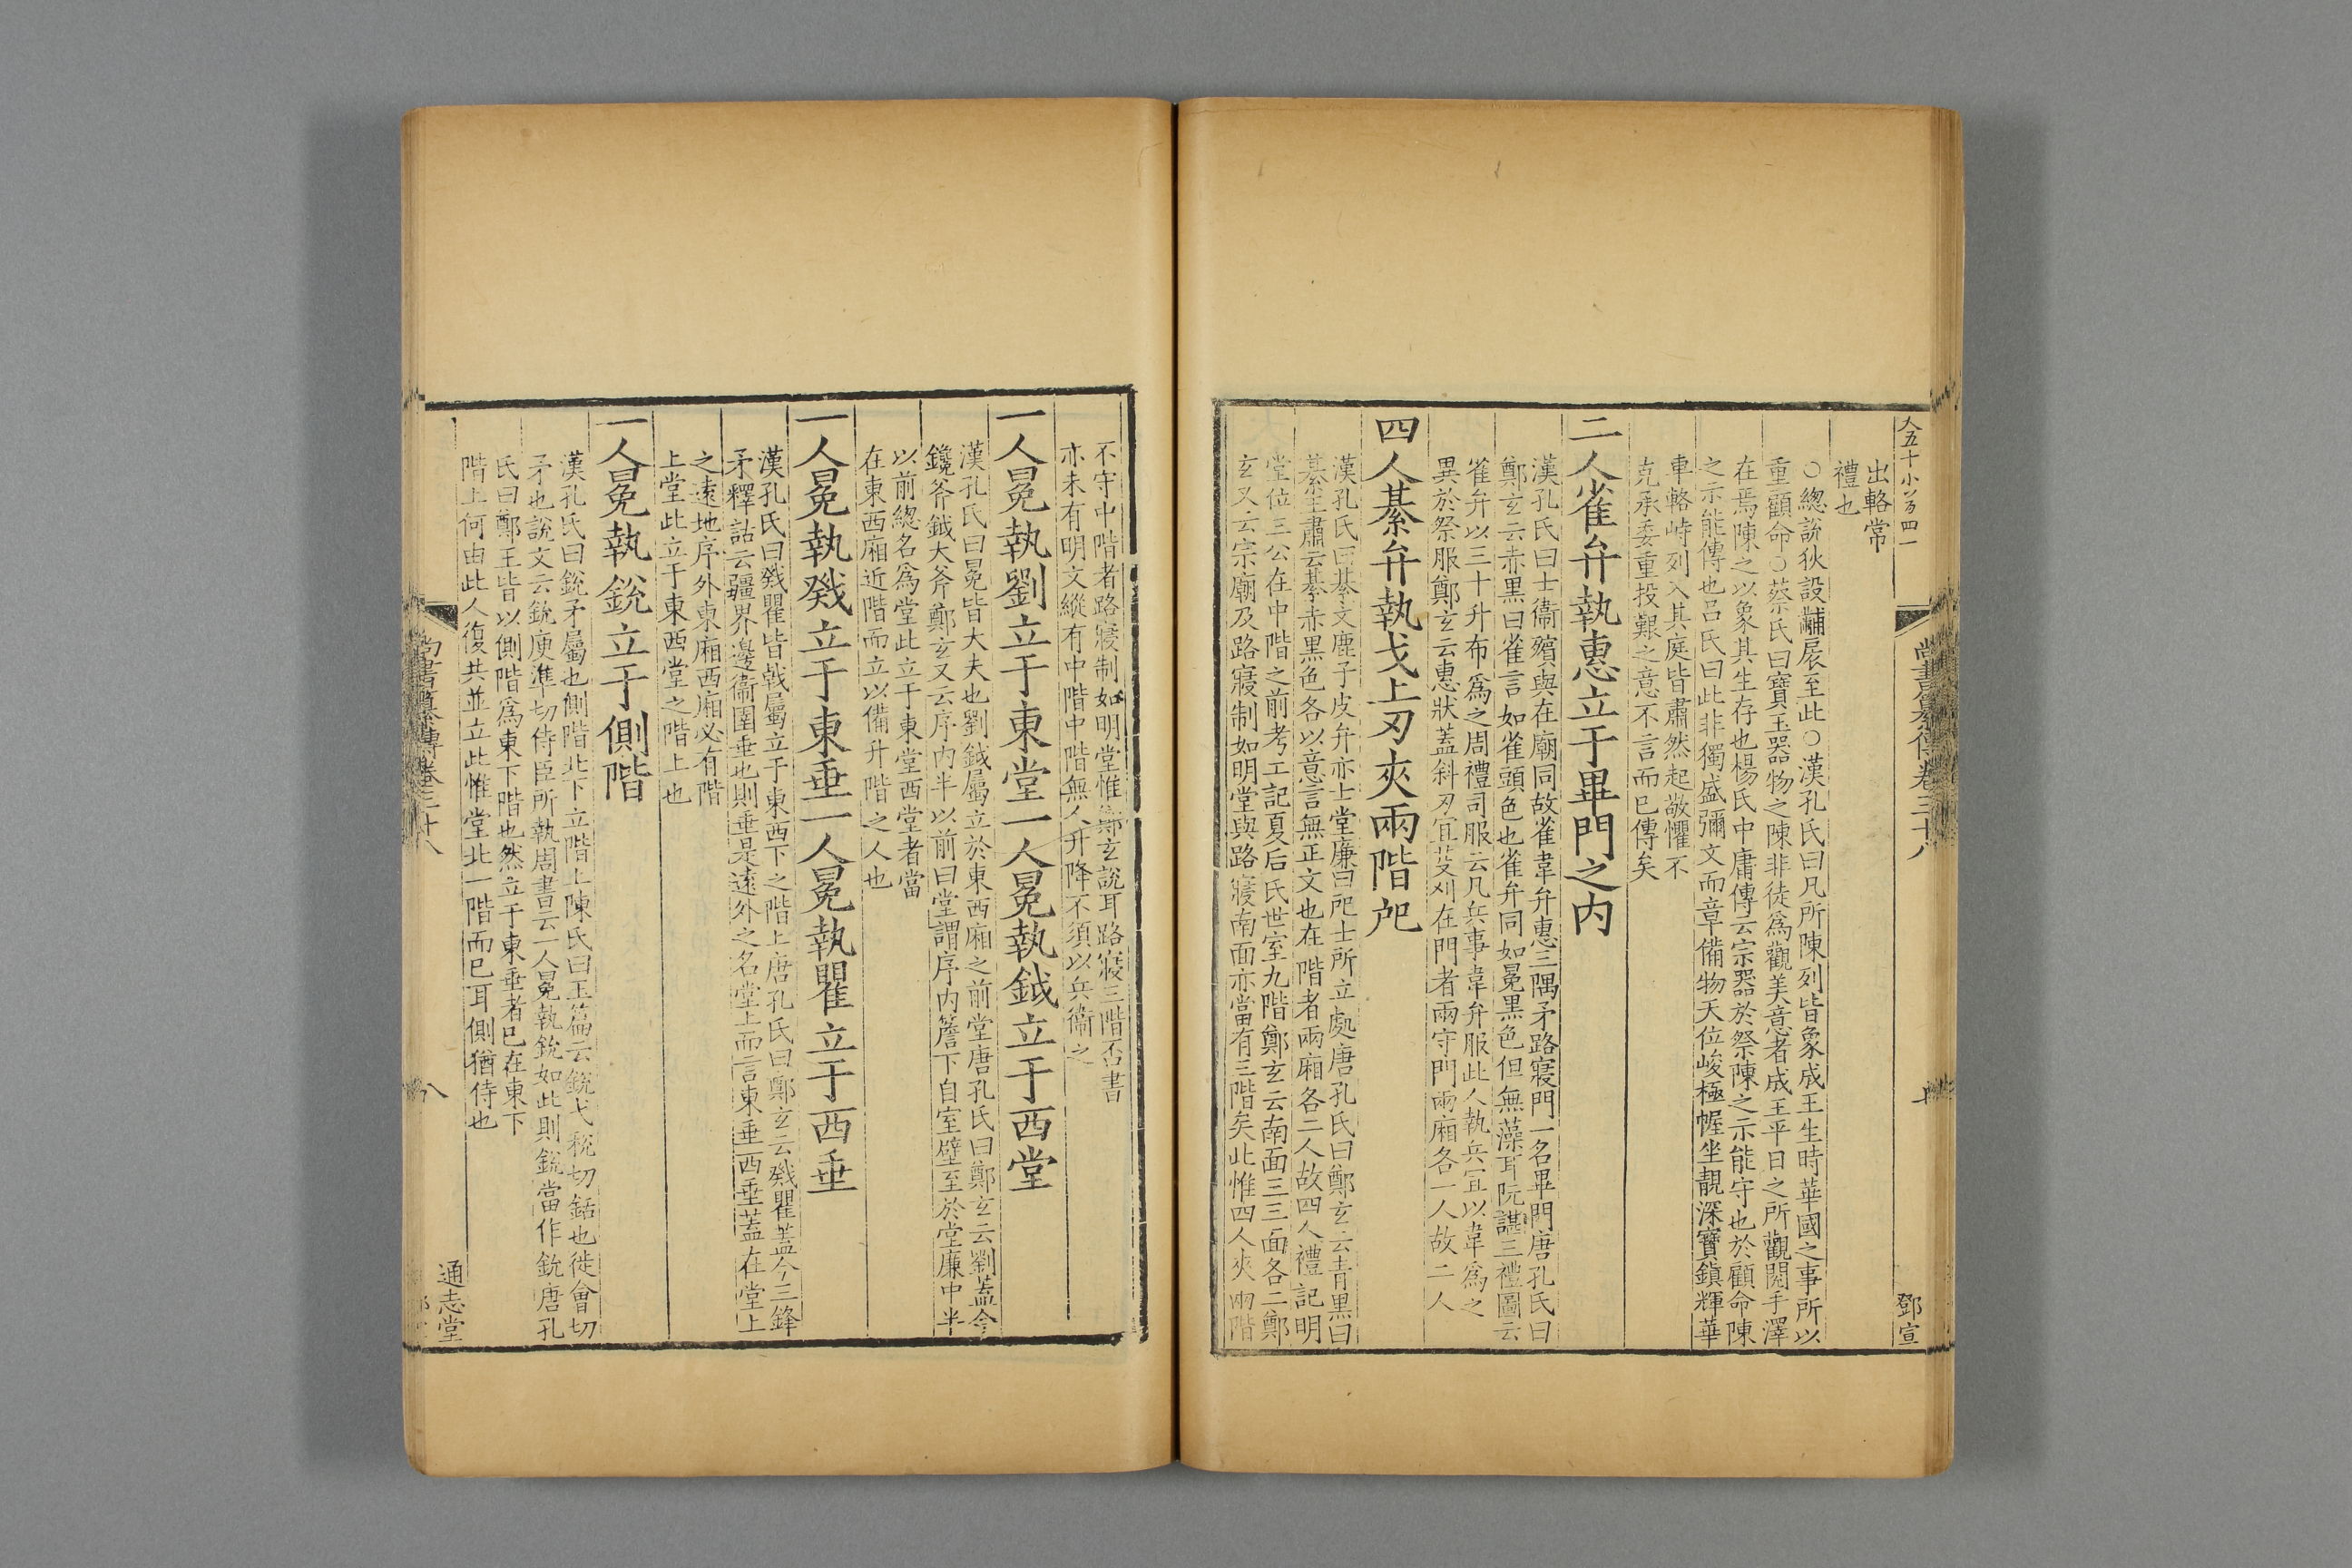 大五十小四百四一
尚書纂傳卷三十八
鄧宣
出輅常
禮也
○總說狄設黼扆至此○漢孔氏曰凡所陳列皆象成王生時華國之事所以
重顧命○蔡氏曰寶玉器物之陳非徒為觀美意者成王平日之所觀閱手澤
在焉陳之以象其生存也楊氏中庸傳云宗器於祭陳之示能守也於顧命陳
之示能傳也呂氏曰此非獨盛彌文而章備物天位峻極幄坐靚深寶鎮輝華
車輅峙列入其庭皆肅然起敬懼不
克承委重投艱之意不言而已傳矣
二人雀弁執惠立于畢門之内
漢孔氏曰士衞殯與在廟同故雀韋弁惠三隅矛路寢門一名畢門唐孔氏曰
鄭玄云赤黑曰雀言如雀頭色也雀弁同如冕黑色但無藻耳阮諶三禮圖云
雀弁以三十升布為之周禮司服云凡兵事韋弁服此人執兵宜以韋為之
異於祭服鄭玄云惠狀蓋斜刃宜芟刈在門者兩守門兩廂各一人故二人
四人綦弁執戈上刃夾兩階戺
漢孔氏曰綦文鹿子皮弁亦士堂廉曰戺士所立處唐孔氏曰鄭玄云青黑曰
綦王肅云綦赤黑色各以意言無正文也在階者兩廂各二人故四人禮記明
堂位三公在中階之前考工記夏后氏世室九階鄭玄云南面三三面各二鄭
玄又云宗廟及路寢制如明堂與路寢南面亦當有三階矣此惟四人夾兩階
不守中階者路寢制如明堂惟鄭玄說耳路寢三階否書
亦未有明文縱有中階中階無人升降不須以兵衞之
一人冕執劉立于東堂一人冕執鉞立于西堂
漢孔氏曰冕皆大夫也劉鉞屬立於東西廂之前堂唐孔氏曰鄭玄云劉蓋今
鑱斧鉞大斧鄭玄又云序内半以前曰堂謂序内簷下自室壁至於堂廉中半
以前總名為堂此立于東堂西堂者當
在東西廂近階而立以備升階之人也
一人冕執戣立于東垂一人冕執瞿立于西垂
漢孔氏曰戣瞿皆戟屬立于東西下之階上唐孔氏曰鄭玄云戣瞿蓋今三鋒
矛釋詁云疆界邊衞圉垂也則垂是遠外之名堂上而言東垂西垂蓋在堂上
之遠地序外東廂西廂必有階
上堂此立于東西堂之階上也
一人冕執銳立于側階
漢孔氏曰銳矛屬也側階北下立階上陳氏曰玉篇云銳弋稅切銛也徙會切
矛也說文云鈗庾準切侍臣所執周書云一人冕執鈗如此則銳當作鈗唐孔
氏曰鄭王皆以側階為東下階也然立于東垂者已在東下
階上何由此人復共並立此惟堂北一階而已耳側猶侍也
尚書纂傳卷三十八
八
通志堂